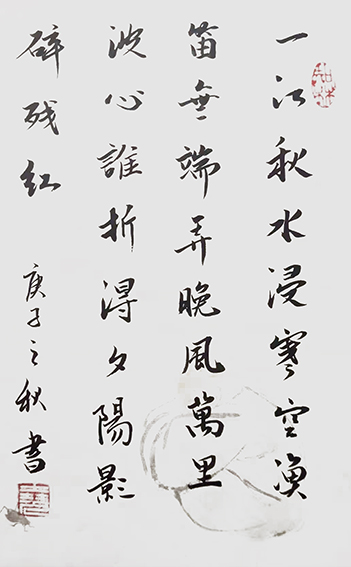 一江秋水浸寒空漁
笛無端弄晚風萬里
波心誰折得夕陽影
碎残红
庚子之秋書